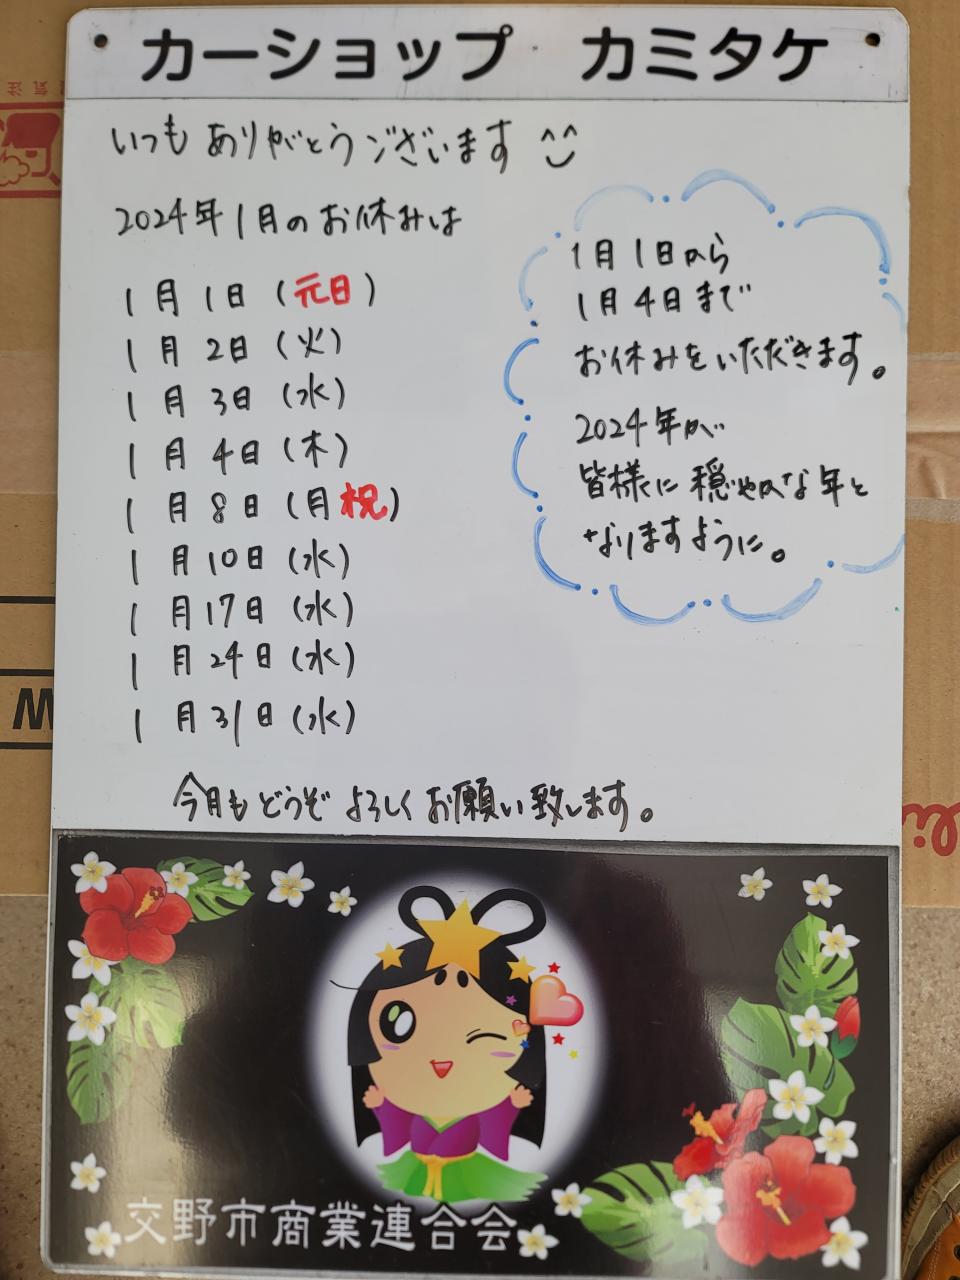 カーショップ カミタケ
いつも ありがとうございます ^^
2024年1月のお休みは
1月1日(元日)
1月2日(火)
1月3日(水)
1月4日(木)
1月8日(月祝)
1月10日(水)
1月17日(水)
1月24日(水)
1月31日(水)
1月1日から
1月4日まで
お休みをいただきます。
2024年が
皆様に穏やかな年と
なりますように。
今月もどうぞよろしくお願い致します。
交野市商業連合会
W